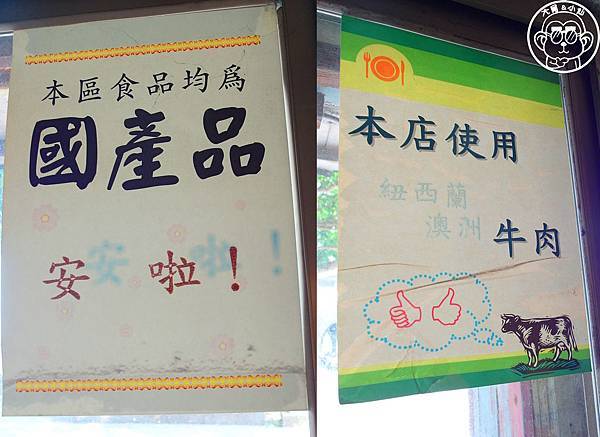 本區食品均為
國產品
安啦！
本店使用
紐西蘭
澳洲
牛肉
大胃&小妞